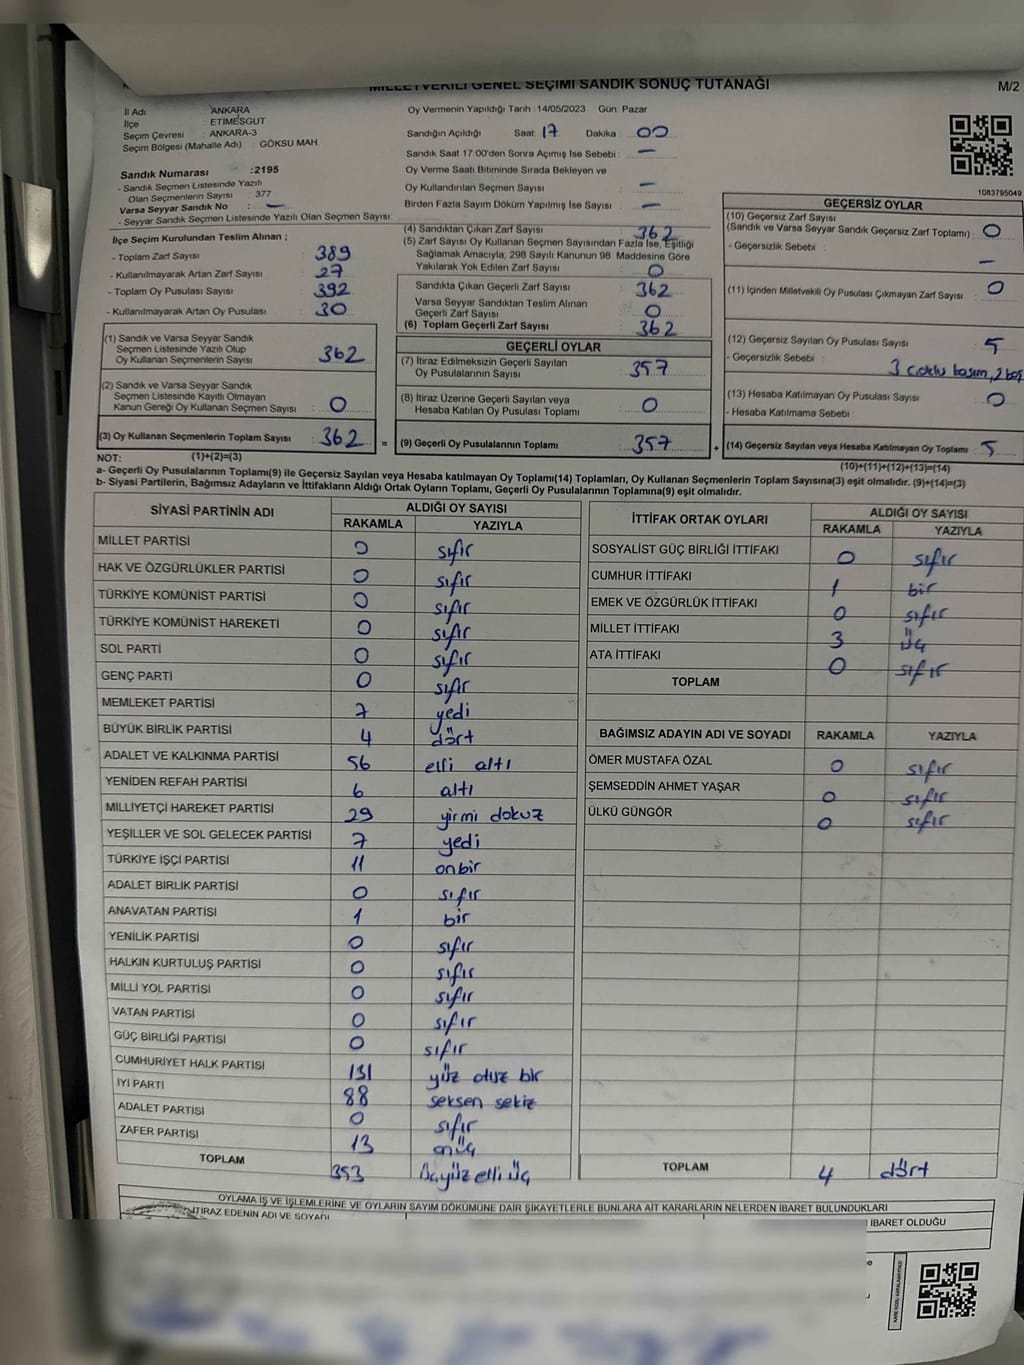 MİLLETVEKİLİ GENEL SEÇİMİ SANDIK SONUÇ TUTANAĞI
M/2
İl Adı : ANKARA
İlçe : ETİMESGUT
Seçim Çevresi : ANKARA-3
Seçim Bölgesi (Mahalle Adı) : GÖKSU MAH.
Sandık Numarası :2195
- Sandık Seçmen Listesinde Yazılı
Olan Seçmenlerin Sayısı : 377
Varsa Seyyar Sandık No : -
- Seyyar Sandık Seçmen Listesinde Yazılı Olan Seçmen Sayısı:
Oy Vermenin Yapıldığı Tarih :14/05/2023 Gün: Pazar
Sandığın Açıldığı Saat: 17 Dakika : 00
Sandık Saat 17:00'den Sonra Açımış İse Sebebi : -
Oy Verme Saati Bitiminde Sırada Bekleyen ve
Oy Kullandırılan Seçmen Sayısı : -
Birden Fazla Sayım Döküm Yapılmış İse Sayısı : -
1083795049
İlçe Seçim Kurulundan Teslim Alınan ;
- Toplam Zarf Sayısı : 389
- Kullanılmayarak Artan Zarf Sayısı : 27
- Toplam Oy Pusulası Sayısı : 392
- Kullanılmayarak Artan Oy Pusulası : 30
(1) Sandık ve Varsa Seyyar Sandık
Seçmen Listesinde Yazılı Olup
Oy Kullanan Seçmenlerin Sayısı : 362
(2) Sandık ve Varsa Seyyar Sandık
Seçmen Listesinde Kayıtlı Olmayan
Kanun Gereği Oy Kullanan Seçmen Sayısı : 0
(3) Oy Kullanan Seçmenlerin Toplam Sayısı : 362 =
(4) Sandıktan Çıkan Zarf Sayısı : 362
(5) Zarf Sayısı Oy Kullanan Seçmen Sayısından Fazla İse, Eşitliği
Sağlamak Amacıyla, 298 Sayılı Kanunun 98. Maddesine Göre
Yakılarak Yok Edilen Zarf Sayısı : 0
Sandıkta Çıkan Geçerli Zarf Sayısı : 362
Varsa Seyyar Sandıktan Teslim Alınan
Geçerli Zarf Sayısı : 0
(6) Toplam Geçerli Zarf Sayısı : 362
GEÇERLİ OYLAR
(7) İtiraz Edilmeksizin Geçerli Sayılan
Oy Pusulalarının Sayısı : 357
(8) İtiraz Üzerine Geçerli Sayılan veya
Hesaba Katılan Oy Pusulası Toplamı : 0
(9) Geçerli Oy Pusulalarının Toplamı : 357 +
GEÇERSİZ OYLAR
(10) Geçersiz Zarf Sayısı
(Sandık ve Varsa Seyyar Sandık Geçersiz Zarf Toplamı) : 0
- Geçersizlik Sebebi : -
(11) İçinden Milletvekili Oy Pusulası Çıkmayan Zarf Sayısı : 0
(12) Geçersiz Sayılan Oy Pusulası Sayısı : 5
- Geçersizlik Sebebi : 3 çoklu basım, 2 boş
(13) Hesaba Katılmayan Oy Pusulası Sayısı : 0
- Hesaba Katılmama Sebebi :
(14) Geçersiz Sayılan veya Hesaba Katılmayan Oy Toplamı : 5
NOT: (1)+(2)=(3)
(10)+(11)+(12)+(13)=(14)
a- Geçerli Oy Pusulalarının Toplamı(9) ile Geçersiz Sayılan veya Hesaba katılmayan Oy Toplamı(14) Toplamları, Oy Kullanan Seçmenlerin Toplam Sayısına(3) eşit olmalıdır. (9)+(14)=(3)
b- Siyasi Partilerin, Bağımsız Adayların ve İttifakların Aldığı Ortak Oyların Toplamı, Geçerli Oy Pusulalarının Toplamına(9) eşit olmalıdır.
SİYASİ PARTİNİN ADI ALDIĞI OY SAYISI
RAKAMLA YAZIYLA
MİLLET PARTİSİ 0 sıfır
HAK VE ÖZGÜRLÜKLER PARTİSİ 0 sıfır
TÜRKİYE KOMÜNİST PARTİSİ 0 sıfır
TÜRKİYE KOMÜNİST HAREKETİ 0 sıfır
SOL PARTİ 0 sıfır
GENÇ PARTİ 0 sıfır
MEMLEKET PARTİSİ 7 yedi
BÜYÜK BİRLİK PARTİSİ 4 dört
ADALET VE KALKINMA PARTİSİ 56 elli altı
YENİDEN REFAH PARTİSİ 6 altı
MİLLİYETÇİ HAREKET PARTİSİ 29 yirmi dokuz
YEŞİLLER VE SOL GELECEK PARTİSİ 7 yedi
TÜRKİYE İŞÇİ PARTİSİ 11 onbir
ADALET BİRLİK PARTİSİ 0 sıfır
ANAVATAN PARTİSİ 1 bir
YENİLİK PARTİSİ 0 sıfır
HALKIN KURTULUŞ PARTİSİ 0 sıfır
MİLLİ YOL PARTİSİ 0 sıfır
VATAN PARTİSİ 0 sıfır
GÜÇ BİRLİĞİ PARTİSİ 0 sıfır
CUMHURİYET HALK PARTİSİ 131 yüz otuz bir
İYİ PARTİ 88 seksen sekiz
ADALET PARTİSİ 0 sıfır
ZAFER PARTİSİ 13 onüç
TOPLAM 353 üçyüz elli üç
İTTİFAK ORTAK OYLARI ALDIĞI OY SAYISI
RAKAMLA YAZIYLA
SOSYALİST GÜÇ BİRLİĞİ İTTİFAKI 0 sıfır
CUMHUR İTTİFAKI 1 bir
EMEK VE ÖZGÜRLÜK İTTİFAKI 0 sıfır
MİLLET İTTİFAKI 3 üç
ATA İTTİFAKI 0 sıfır
TOPLAM
BAĞIMSIZ ADAYIN ADI VE SOYADI RAKAMLA YAZIYLA
ÖMER MUSTAFA ÖZAL 0 sıfır
ŞEMSEDDİN AHMET YAŞAR 0 sıfır
ÜLKÜ GÜNGÖR 0 sıfır
TOPLAM 4 dört
OYLAMA İŞ VE İŞLEMLERİNE VE OYLARIN SAYIM DÖKÜMÜNE DAİR ŞİKAYETLERLE BUNLARA AİT KARARLARIN NELERDEN İBARET BULUNDUKLARI
İTİRAZ EDENİN ADI VE SOYADI
İBARET OLDUĞU